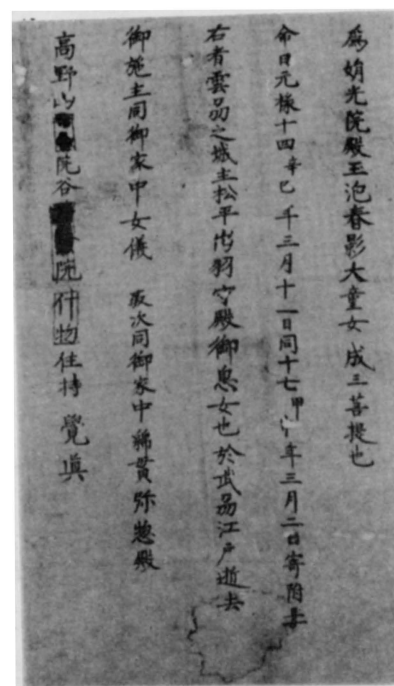 為娟光院殿玉泡春影大童女成三菩提也
命日元禄十四辛巳年三月十一日同十七甲申年三月二日寄附畢
右者雲刕之城主松平出羽守殿御息女也於武刕江戸逝去
御施主同御家中女儀 取次同御家中稀貫弥惣殿
高野山院谷院什物住持 覺眞